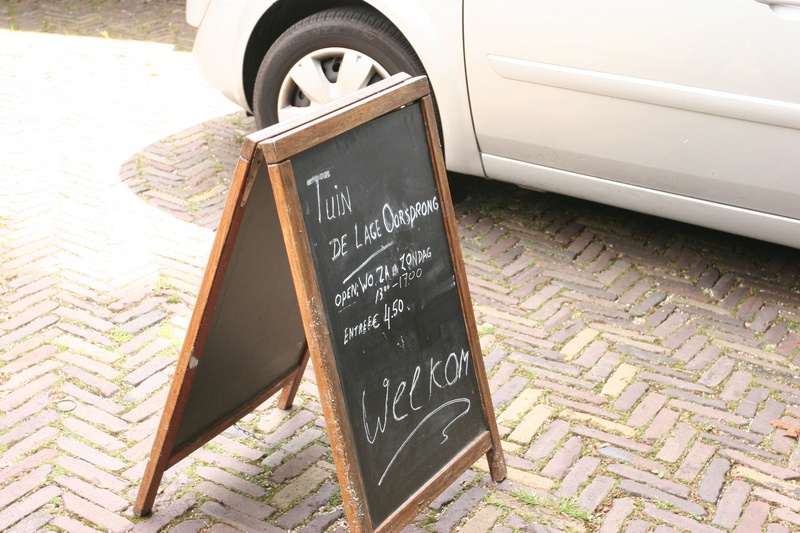 Tuin
DE LAGE OORSDRONG
OPEN; WO. ZA EN ZONDAG
13⁰⁰-17⁰⁰
ENTREE € 4.50.
Welkom